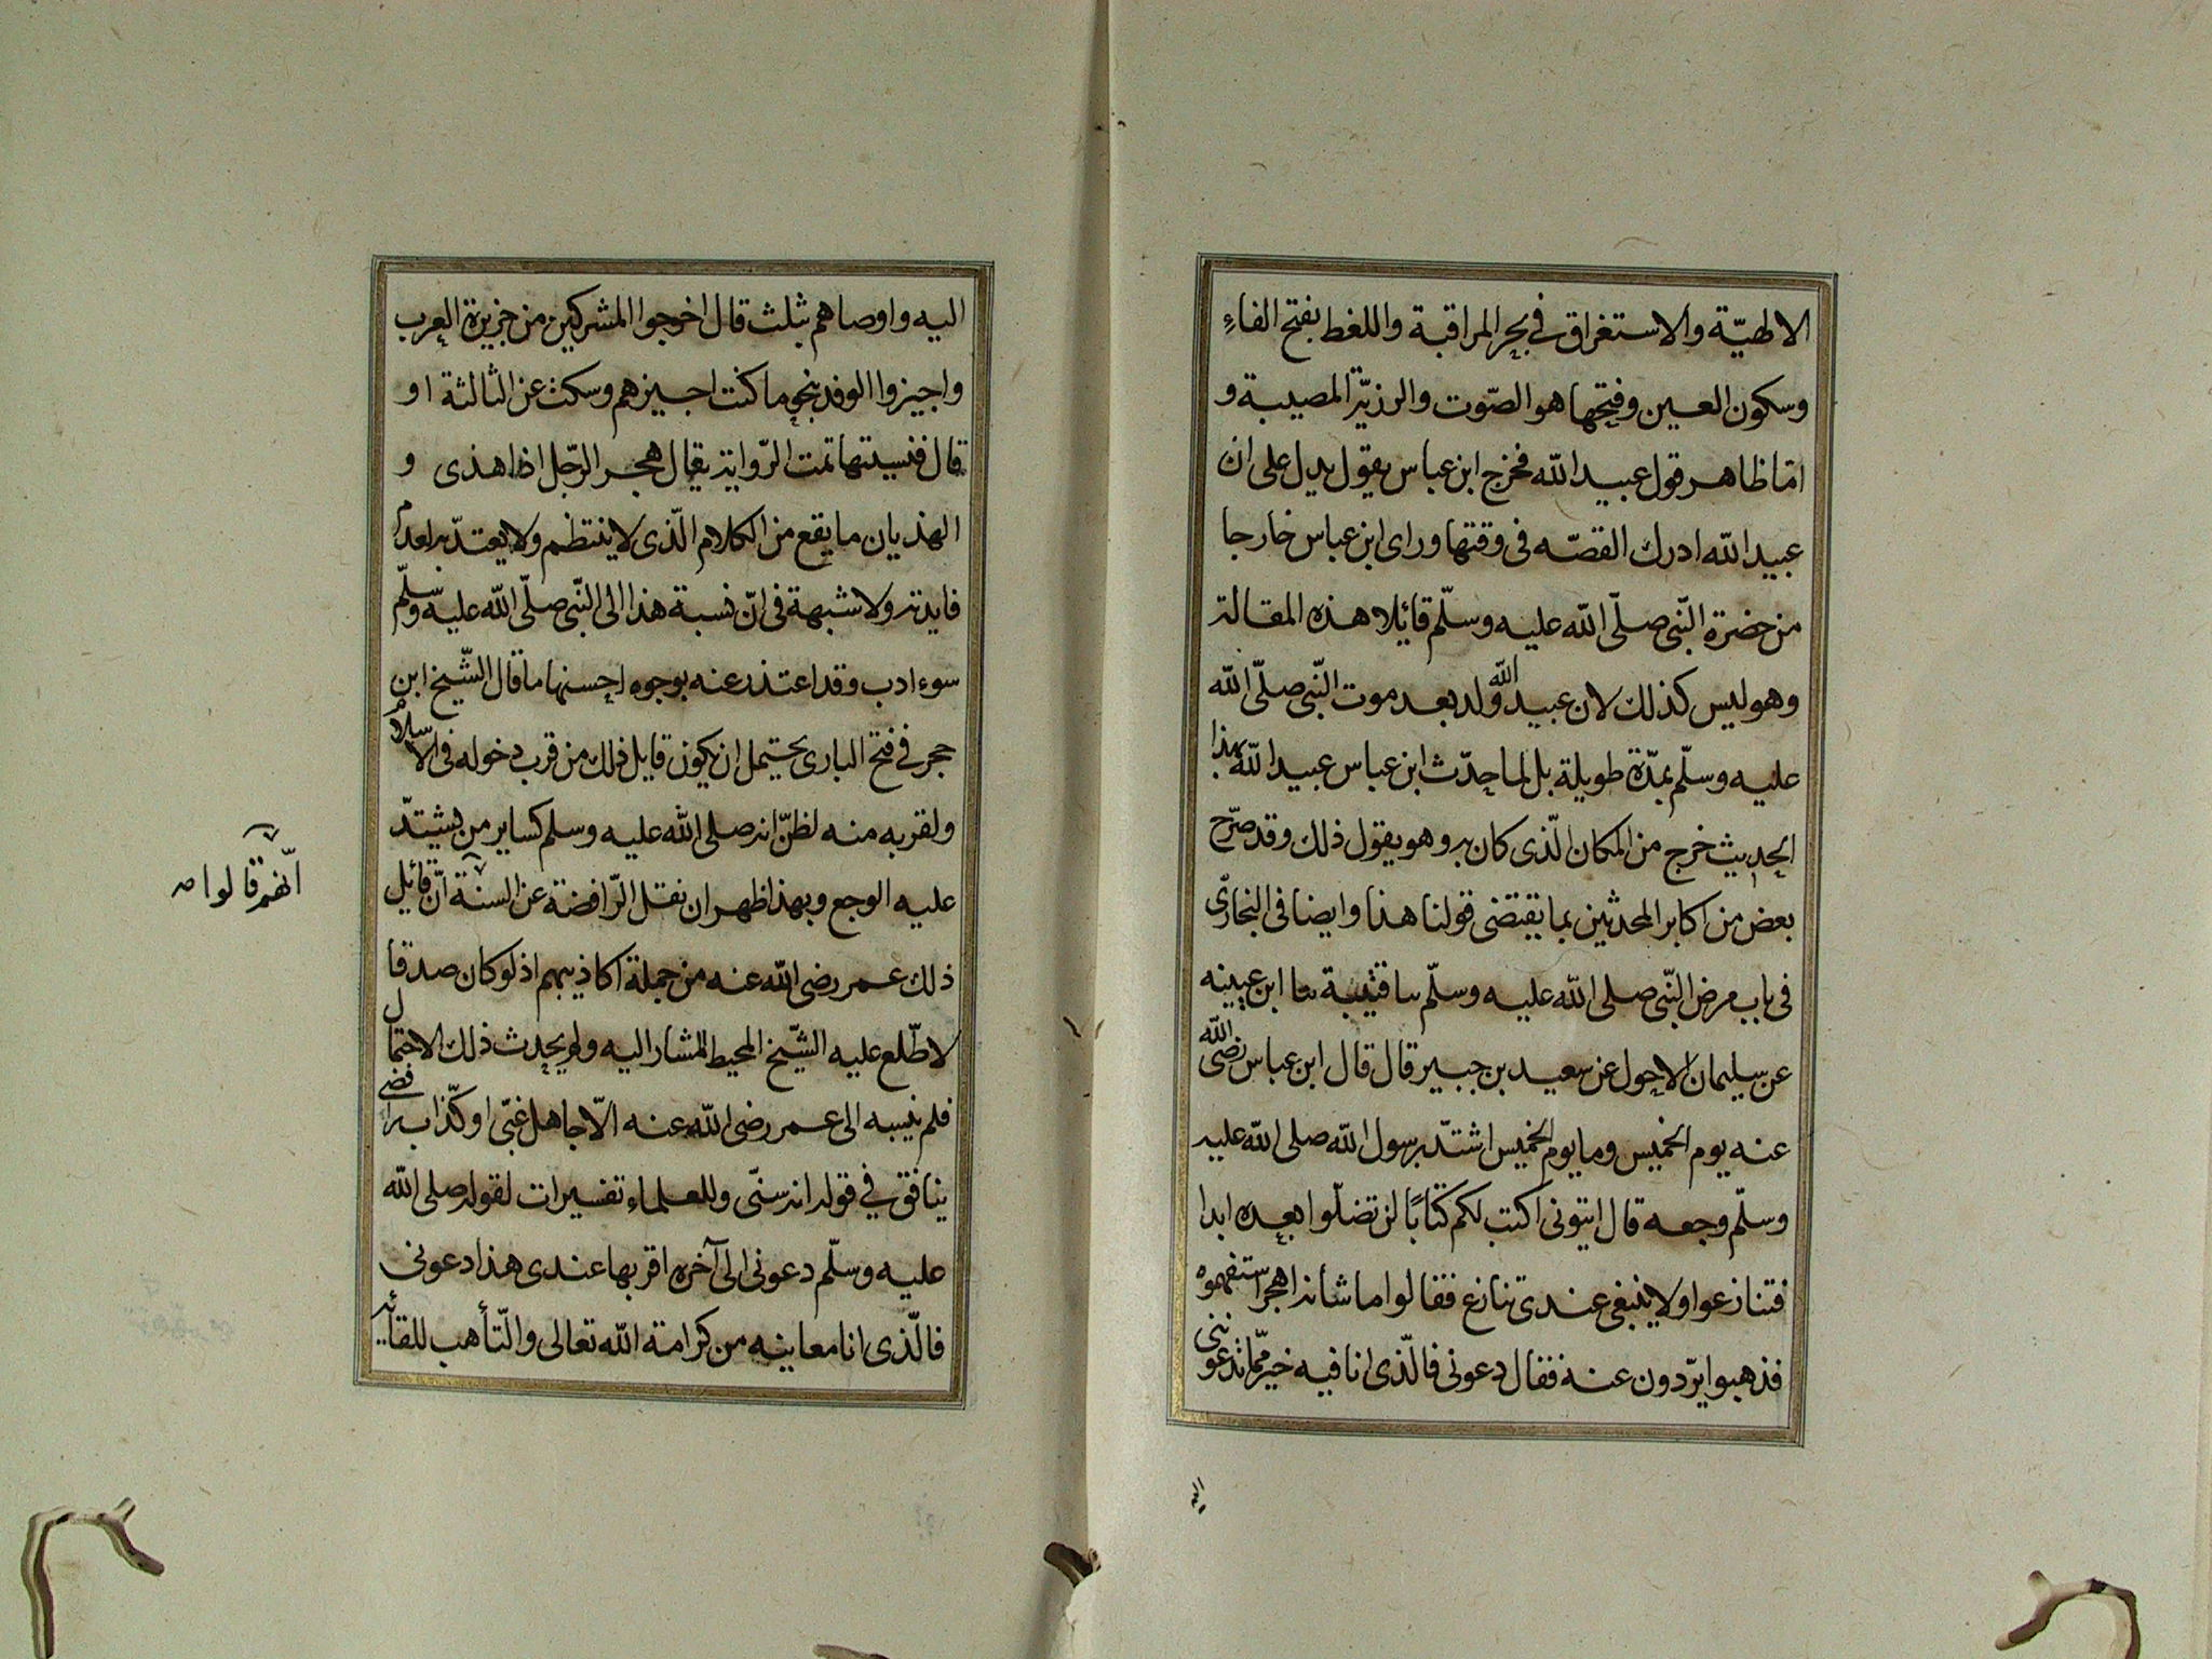 الالهيّة والاستغراق في بحر المراقبة واللغط بفتح الفاء
وسكون العين وفتحها هو الصّوت والرزيّة المصيبة و
امّا ظاهر قول عبيد الله فخرج ابن عباس يقول يدل على ان
عبيد الله ادرك القصّه فى وقتها وراى ابن عباس خارجا
من حضرة النّبى صلّى الله عليه وسلّم قائلا هذه المقالة
وهو ليس كذلك لان عبيد الله ولد بعد موت النّبى صلّى الله
عليه وسلّم بمدّة طويلة بل لما حدّث ابن عباس عبيد الله بهذا
الحديث خرج من المكان الّذى كان به وهو يقول ذلك وقد صرّح
بعض من اكابر المحدثين بما يقتضى قولنا هذا وايضا فى البخارى
فى باب مرض النّبى صلى الله عليه وسلّم سا قتيبة سا ابن عيينه
عن سليمان الاحول عن سعيد بن جبير قال قال ابن عباس رضى الله
عنه يوم الخميس وما يوم الخميس اشتدّ برسول الله صلى الله عليه
وسلّم وجعه قال ايتونى اكتب لكم كتابًا لن تضلّوا بعده ابدا
فتنازعوا ولا ينبغى عندى تنازع فقالوا ما شأنه اهجر استفهموه
فذهبوا يردّون عنه فقال دعونى فالّذى انا فيه خير ممّا تدعوننى
اليه
اليه واوصاهم بثلث قال اخرجوا المشركين من جزيرة العرب
واجيزوا الوفد بنحو ما كنت اجيزهم وسكت عن الثالثة او
قال فنسيتها تمت الرّواية يقال هجر الرّجل اذا هذى و
الهذيان ما يقع من الكلام الّذى لا ينتظم ولا يعتدّ به لعدم
فايدته ولا شبهة فى انّ نسبة هذا الى النّبى صلّى الله عليه وسلّم
سوء ادب وقد اعتذر عنه بوجوه احسنها ما قال الشّيخ ابن
حجر في فتح البارى يحتمل ان يكون قايل ذلك من قرب دخوله فى الاسلام
ولقربه منه لظنّ انه صلى الله عليه وسلم كساير من يشتدّ
عليه الوجع وبهذا ظهر ان نقل الرّافضة عن السنة انّ قائل
انّهم قالوا صه
ذلك عمر رضى الله عنه من جملة اكاذيبهم اذ لو كان صدقا
لاطّلع عليه الشّيخ المحيط المشار اليه ولم يحدث ذلك الاحتمال
فلم ينسبه الى عمر رضى الله عنه الّا جاهل غبّى او كذّاب رافضى
ينافق في قوله انه سنّى وللعلماء تفسيرات لقوله صلى الله
عليه وسلّم دعونى الى آخره اقربها عندى هذا دعونى
فالّذى انا معاينه من كرامة الله تعالى والتّأهب للقائه